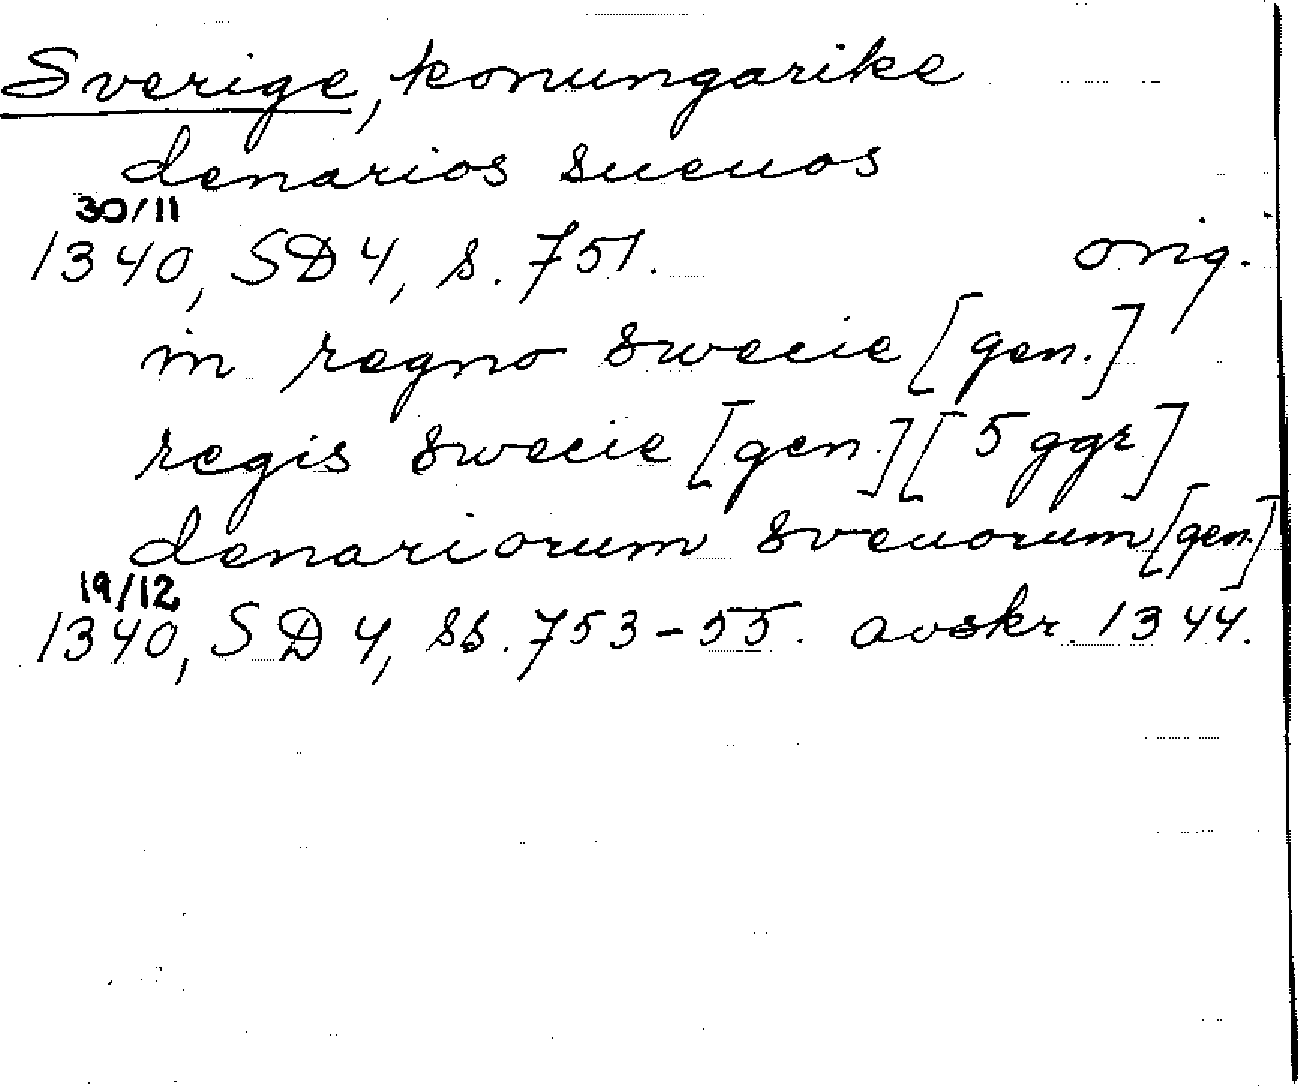 Sverige, konungarike
denarios suenos
30/11
1340, SD 4, s. 751. orig.
in regno swecie [gen.]
regis swecie [gen.] [5 ggr]
denariorum svenorum [gen.]
19/12
1340, SD 4, ss. 753-55. avskr. 1344.